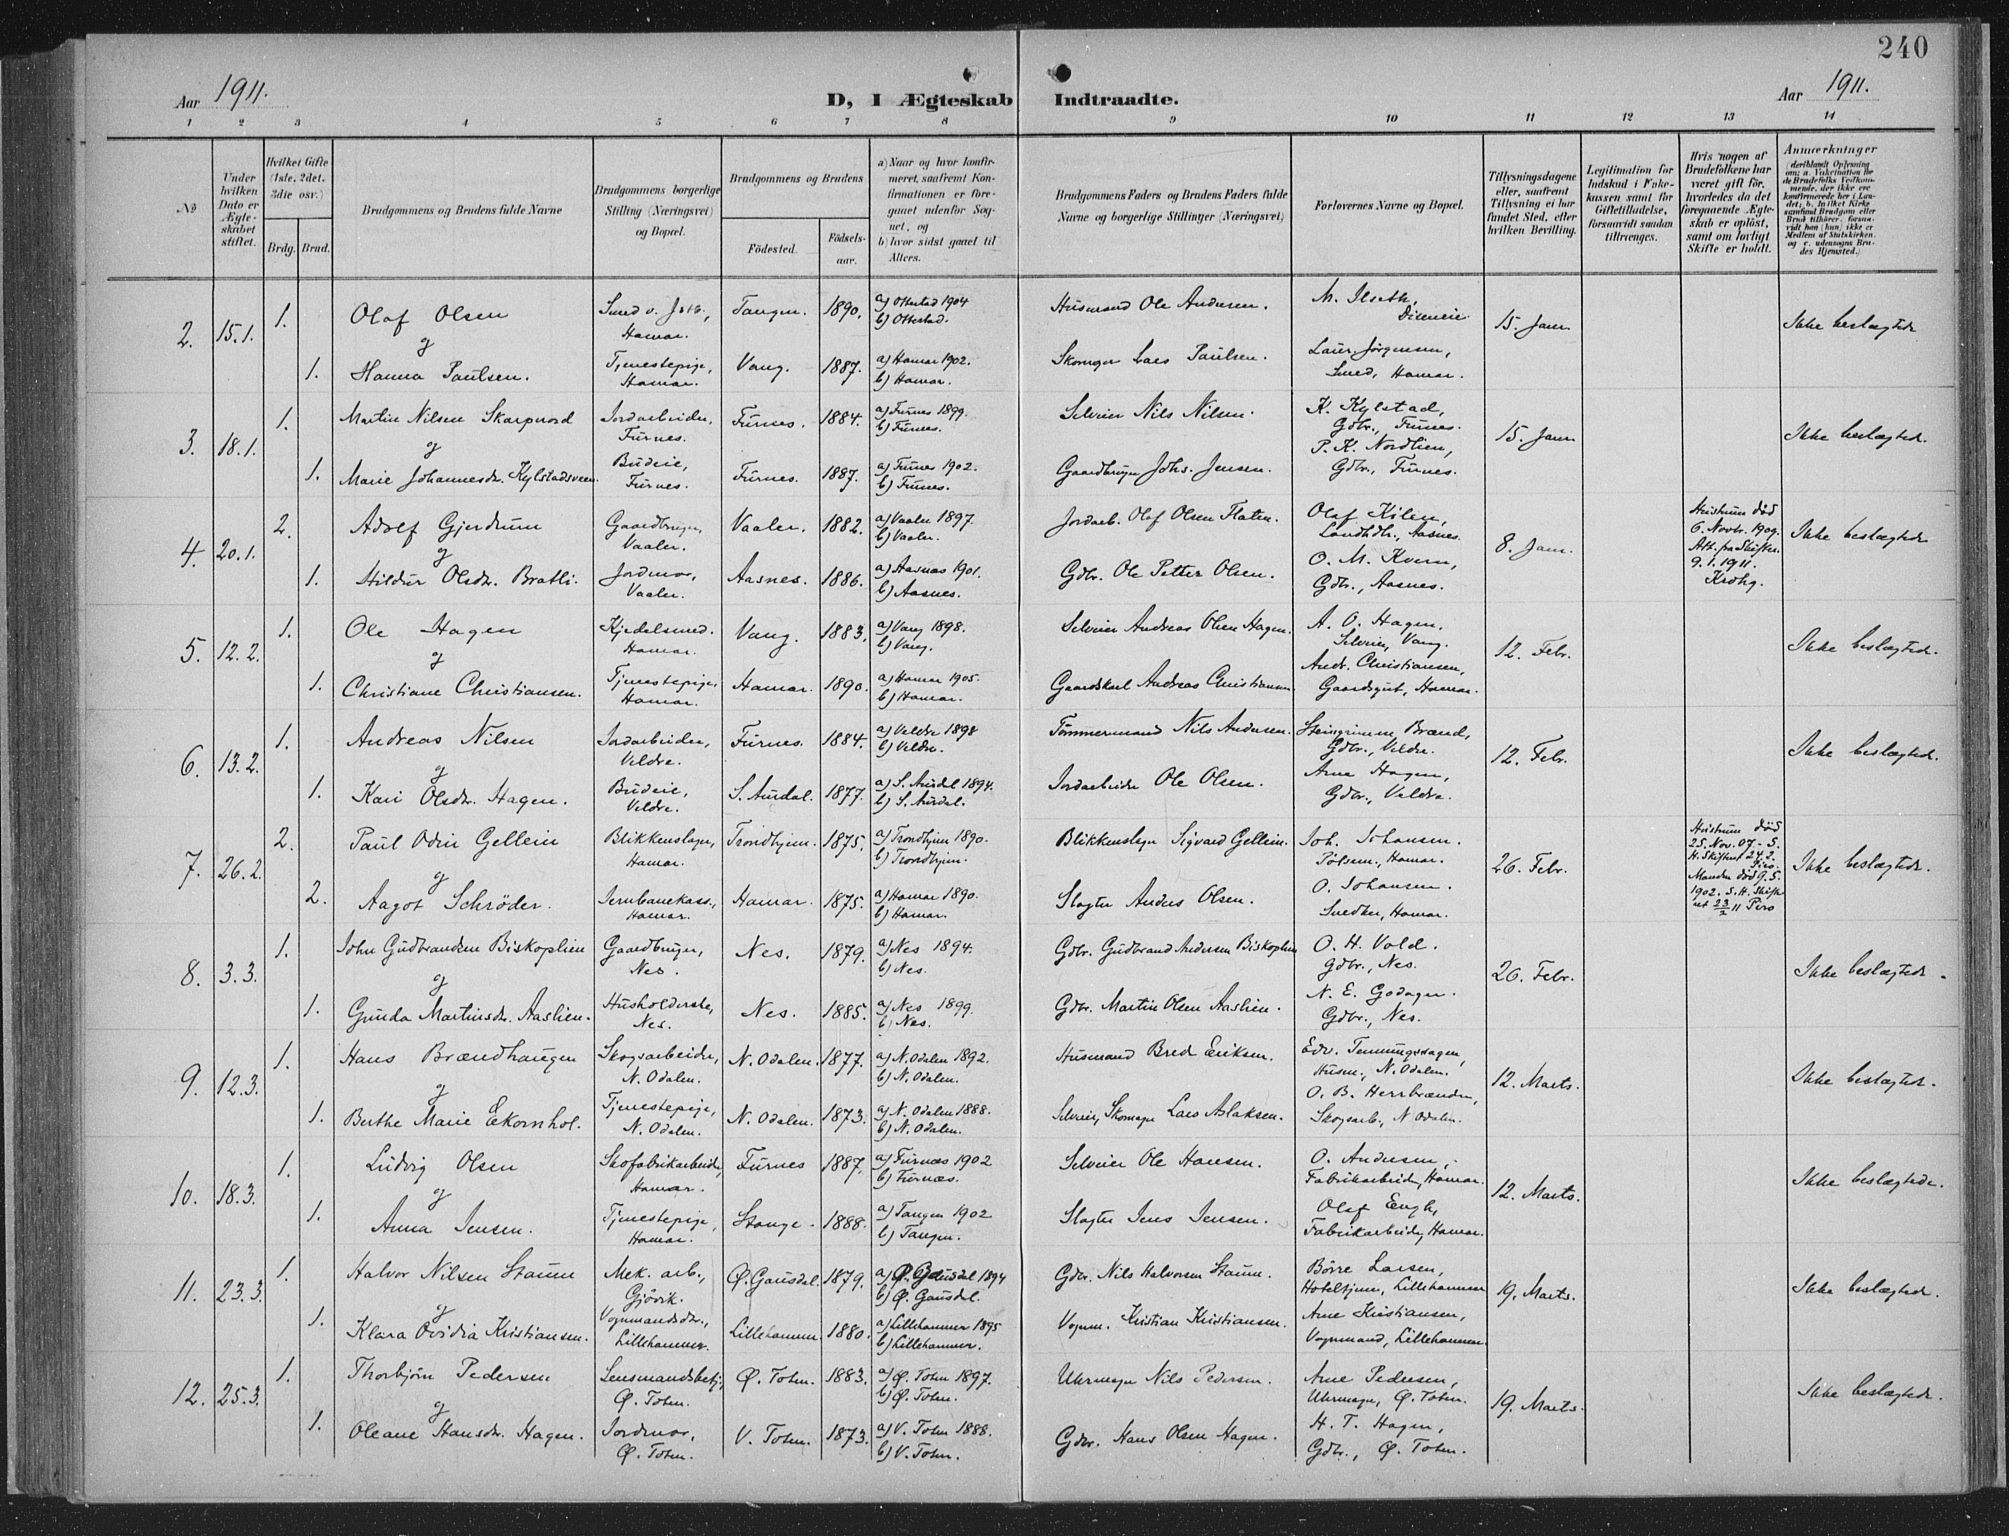 240
Aar 1911.
D, I Ægteskab Indtraadte.
Aar 1911.
1 2 3 4 5 6 7 8 9 10 11 12 13 14
No
Under hvilken Dato er Ægteskabet stiftet.
Hvilket Gifte (1ste, 2det, 3die osv.)
Brdg. Brud.
Brudgommens og Brudens fulde Navne
Brudgommens borgerlige Stilling (Næringsvei) og Bopæl.
Brudgommens og Brudens
Fødested.
Fødselsaar.
a) Naar og hvor konfirmeret, saafremt Konfirmationen er foregaaet udenfor Sognet, og
b) hvor sidst gaaet til Alters.
Brudgommens Faders og Brudens Faders fulde Navne og borgerlige Stillinger (Næringsvei)
Forlovernes Navne og Bopæl.
Tillysningsdagene eller, saafremt Tillysning ei har fundet Sted, efter hvilken Bevilling.
Legitimation for Indskud i Enkekassen samt for Giftetilladelse, forsaavidt saadan tiltrænges.
Hvis nogen af Brudefolkene har været gift før, hvorledes da det foregaaende Ægteskab er opløst, samt om lovligt Skifte er holdt.
Anmærkninger (deriblandt Oplysning om: a. Vakcination for de Brudefolks Vedkommende, der ikke ere konfirmerede her i Landet; b. hvilket Kirkesamfund Brudgom eller Brud tilhører, forsaavidt han (hun) ikke er Medlem af Statskirken, og c. udensogns Brudes Hjemsted.)
2. 15.1. 1. Olaf Olsen Smed v. Jstb., Hamar. Tangen. 1890. a) Ottestad 1904 b) Ottestad. Husmand Ole Andersen. M. Ilseth, 15. Jan. Ikke beslægtede
og
1. Hanna Paulsen. Tjenestepige, Hamar. Vang. 1887. a) Hamar 1902. b) Hamar. Skomager Lars Paulsen. Laur. Jørgensen, Smed, Hamar.
3. 18.1. 1. Martin Nilsen Skarpnord Jordarbeider, Furnes. Furnes. 1884. a) Furnes 1899. b) Furnes. Selveier Nils Nilsen. K. Kylstad, Gdbr., Furnes. 15. Jan. Ikke beslægtede.
og
1. Marie Johannesdr. Kylstadsveen. Budeie, Furnes. Furnes. 1887. a) Furnes 1902. b) Furnes. Gaardbruger Johs. Jensen. P. K. Nordlien, Gdbr., Furnes.
4. 20.1. 2. Adolf Gjerdrum Gaardbruger, Vaaler. Vaaler. 1882. a) Vaaler 1897. b) Vaaler. Jordarb. Olaf Olsen Flaten. Olaf Kilen, Landhdlr., Aasnes. 8. Jan. Hustruen død 6. Novbr. 1909. Att. fra Skifter. 9.1.1911. Krohg. Ikke beslægtede
og
1. Hildur Olsdr. Bratli. Jordmor, Vaaler. Aasnes. 1886. a) Aasnes 1901. b) Aasnes. Gdbr. Ole Petter Olsen. O. M. Kvern, Gdbr., Aasnes.
5. 12.2. 1. Ole Hagen Kjedelsmed. Hamar. Vang. 1883. a) Vang 1898. b) Vang. Selveier Andreas Olsen Hagen. A. O. Hagen, Selveier, Vang. 12. Febr. Ikke beslægtede.
og
1. Christiane Christiansen. Tjenestepige, Hamar. Hamar. 1890. a) Hamar 1905. b) Hamar. Gaardskarl Andreas Christiansen. Andr. Christiansen, Gaardsgut, Hamar.
6. 13.2. 1. Andreas Nilsen Jordarbeider, Veldre. Furnes. 1884. a) Veldre 1898 b) Veldre. Tømmermand Nils Andersen. Steingrimme Brænd, Gdbr., Veldre. 12. Febr. Ikke beslægtede.
og
1. Kari Olsdr. Hagen. Budeie, Veldre. S. Aurdal. 1877. a) S. Aurdal 1894. b) S. Aurdal. Jordarbeider Ole Olsen. Arne Hagen, Gdbr., Veldre.
7. 26.2. 2. Paul Odin Gellein Blikkenslager, Hamar. Trondhjem. 1875. a) Trondhjem 1890. b) Trondhjem. Blikkenslager Sigvard Gellein. Joh. Johansen. Hamar. 26. Febr. Hustruen død 25. Nov. 07 Manden død 9.5. 1902. Ikke beslægtede.
og
2. Aagot Schrøder. Jernbanekass., Hamar. Hamar. 1875. a) Hamar 1890. b) Hamar. Slagter Anders Olsen. O. Johansen. Snedker, Hamar.
8. 3.3. 1. John Gudbrandsen Biskoplien Gaardbruger, Nes. Nes. 1879. a) Nes 1894. b) Nes. Gdbr. Gudbrand Andersen Biskoplien O. H. Vold. Gdbr., Nes. 26. Febr. Ikke beslægtede.
og
1. Gunda Martinsdr. Aaslien. Husholderske, Nes. Nes. 1885. a) Nes 1899. b) Nes. Gdbr. Martin Olsen Aaslien. N. E. Godager. Gdbr., Nes.
9. 12.3. 1. Hans Brændhaugen Skogsarbeider, N. Odalen. N. Odalen. 1877. a) N. Odalen 1892. b) N. Odalen. Husmand Bred Eriksen. Edv. Husm., N. Odalen. 12. Marts. Ikke beslægtede.
og
1. Berthe Marie Ekornhol. Tjenestepige, N. Odalen. N. Odalen. 1873. a) N. Odalen 1888. b) N. Odalen. Selveier, Skomager Lars Aslaksen. O. B. Herrbrænden, Skogsarb., N. Odalen.
10. 18.3. 1. Ludvig Olsen Skofabrikarbeider, Hamar. Furnes 1887. a) Furnæs 1902 b) Furnæs. Selveier Ole Hansen. O. Andersen, Fabrikarbeider, Hamar. 12. Marts. Ikke beslægtede.
og
1. Anna Jensen. Tjenestepige, Hamar. Stange. 1888. a) Tangen 1902 b) Tangen. Slagter Jens Jensen. Olaf Engh, Fabrikarbeider, Hamar.
11. 23.3. 1. Halvor Nilsen Staum Mek. arb., Gjøvik. Ø. Gausdal. 1879. a) Ø. Gausdal 1894 b) Ø. Gausdal. Gdbr. Nils Halvorsen Staum. Børre Larsen, Hoteltjener, Lillehammer 19. Marts. Ikke beslægtede.
og
1. Klara Ovidia Kristiansen. Vognmandsdr., Lillehammer. Lillehammer. 1880. a) Lillehammer 1895 b) Lillehammer. Vognm. Kristian Kristiansen. Arne Kristiansen, Vognmand, Lillehammer.
12. 25.3. 1. Thorbjørn Pedersen Lensmandsbetj., Ø. Toten. Ø. Toten. 1883. a) Ø. Toten 1897. b) Ø. Toten. Uhrmager Nils Pedersen. Arne Pedersen, Uhrmager, Ø. Toten. 19. Marts. Ikke beslægtede.
og
1. Oleane Hansdr. Hagen. Jordmor, Ø. Toten. V. Toten. 1873. a) V. Toten 1888. b) V. Toten. Gdbr. Hans Olsen Hagen. H. T. Hagen, Gdbr., Ø. Toten.